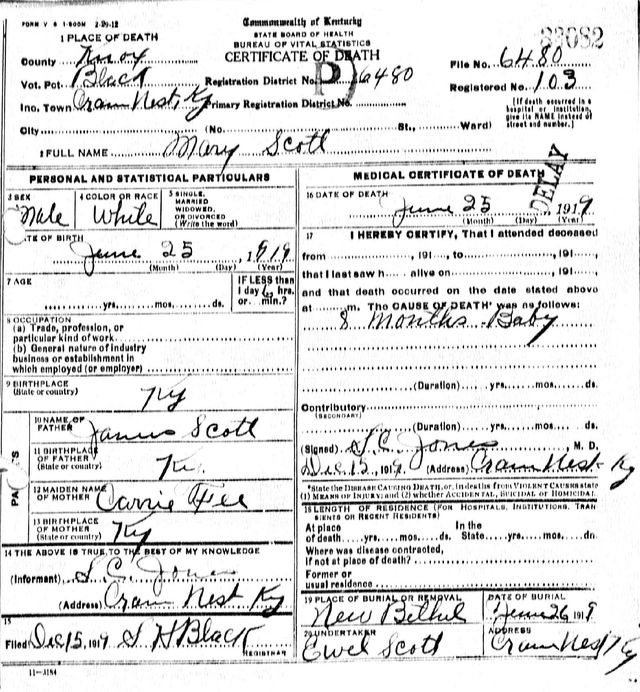 FORM V S 1-500M 2-20-12
Commonwealth of Kentucky
STATE BOARD OF HEALTH
BUREAU OF VITAL STATISTICS
CERTIFICATE OF DEATH
33082
1 PLACE OF DEATH
County Knox
Vot. Pct. Black
Inc. Town Crain Nest, Ky
Registration District No. 6480
Primary Registration District No.
File No. 6480
Registered No. 103
[If death occurred in a
hospital or institution,
give its NAME instead of
street and number.]
City (No. St., Ward)
2 FULL NAME Mary Scott
PERSONAL AND STATISTICAL PARTICULARS
3 SEX
Male
4 COLOR OR RACE
White
5 SINGLE,
MARRIED
WIDOWED,
OR DIVORCED
(Write the word)
DATE OF BIRTH
June 25, 1919
(Month) (Day) (Year)
7 AGE
yrs. mos. ds.
IF LESS than
1 day hrs.
or min.?
8 OCCUPATION
(a) Trade, profession, or
particular kind of work
(b) General nature of industry
business or establishment in
which employed (or employer)
9 BIRTHPLACE
(State or country)
Ky
PARENTS
10 NAME OF
FATHER
James Scott
11 BIRTHPLACE
OF FATHER
(State or country)
Ky.
12 MAIDEN NAME
OF MOTHER
Carrie Fee
13 BIRTHPLACE
OF MOTHER
(State or country)
Ky
14 THE ABOVE IS TRUE TO THE BEST OF MY KNOWLEDGE
(Informant) S. C. Jones
(Address) Crain Nest Ky
15
Filed Dec 15, 1919 S H Black
REGISTRAR
11-3184
MEDICAL CERTIFICATE OF DEATH
DELAY
16 DATE OF DEATH
June 25, 1919
(Month) (Day) (Year)
17 I HEREBY CERTIFY, That I attended deceased
from , 191 , to , 191 ,
that I last saw h alive on , 191 ,
and that death occurred on the date stated above
at m. The CAUSE OF DEATH* was as follows:
8 Months Baby
(Duration) yrs. mos. ds.
Contributory
(SECONDARY)
(Duration) yrs. mos. ds.
(Signed) S. C. Jones M. D.
Dec 15, 1919 (Address) Crain Nest Ky
*State the DISEASE CAUSING DEATH, or, in deaths from VIOLENT CAUSES state
(1) MEANS OF INJURY; and (2) whether ACCIDENTAL, SUICIDAL or HOMICIDAL.
18 LENGTH OF RESIDENCE (FOR HOSPITALS, INSTITUTIONS, TRAN
SIENTS OR RECENT RESIDENTS)
At place In the
of death yrs. mos. ds. State yrs. mos. dn.
Where was disease contracted,
if not at place of death?
Former or
usual residence
19 PLACE OF BURIAL OR REMOVAL
New Bethel
DATE OF BURIAL
June 26 1919
20 UNDERTAKER
Ewel Scott
ADDRESS
Crain Nest Ky